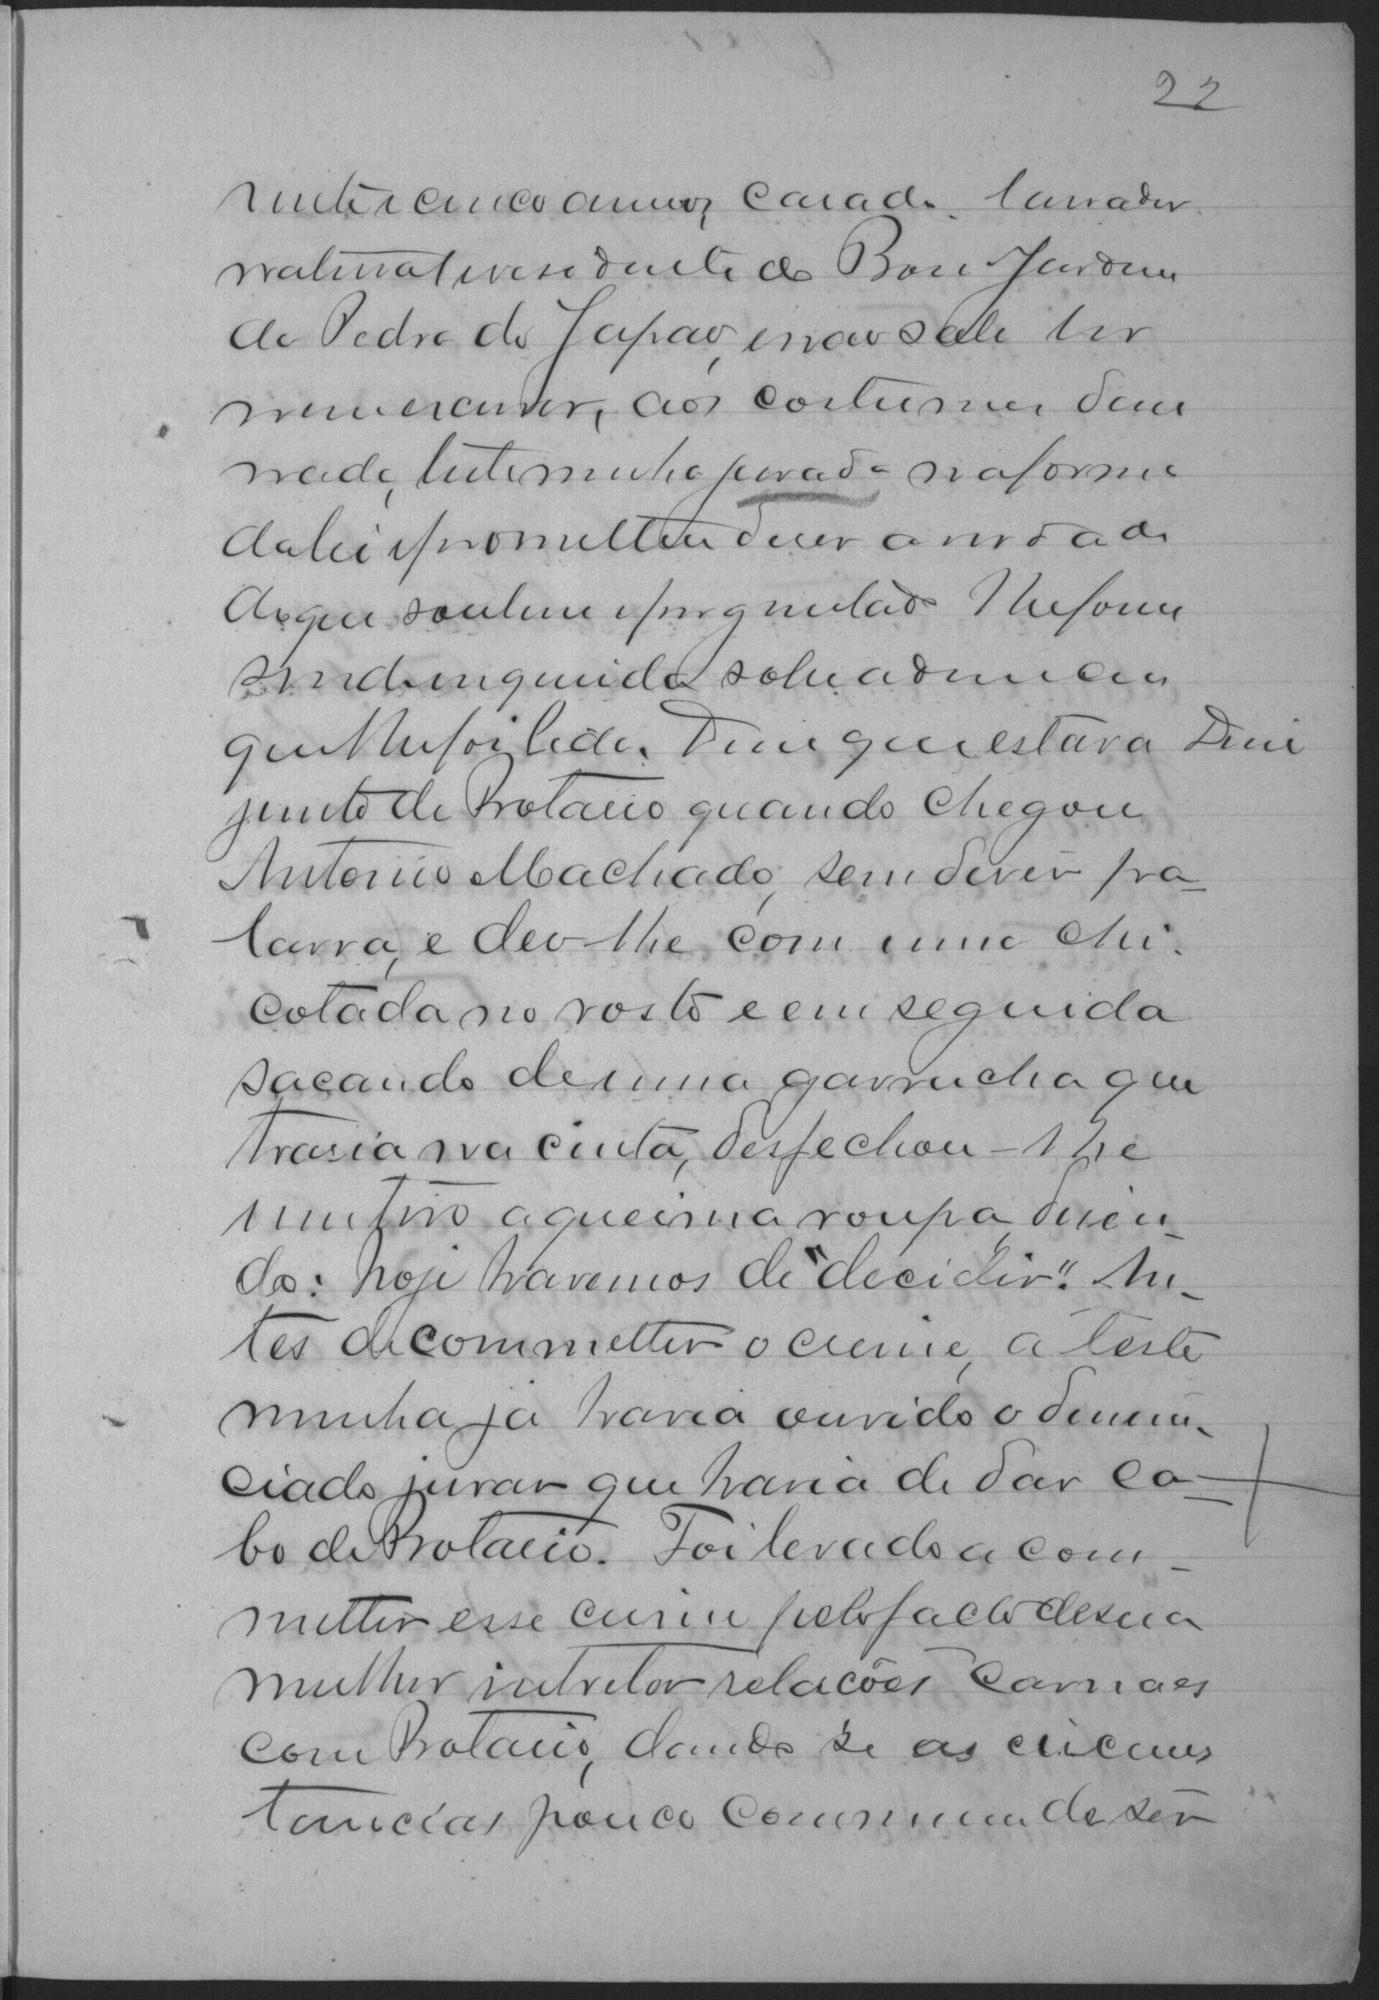 22
vinte e cinco annos, casado, lavrador
natural e residente do Bom Jardim
de Pedro do Japão, e não sabe ler
nem escrever, aos costumes disse
nada, testemunha jurada na forma
da lei e prometteu dizer a verdade
do que soubesse e perguntado lhe fosse
sendo inquirida sobre a denuncia
que lhe foi lida. Disse que estava Disse
junto de Protacio quando chegou
Antonio Machado, sem dizer pa-
lavra, e deo-lhe com uma chi-
cotada no rosto e em seguida
sacando de uma garrucha que
trasia na cinta, desfechou-lhe
um tiro a queima roupa, disen-
do: hoje havemos de "decidir". An-
tes de commetter o crime, a teste
munha ja havia ouvido o denun-
ciado jurar que havia de dar ca-
bo de Protacio. Foi levado a com-
metter esse crime pelo facto de sua
mulher entreter relações carnaes
com Protacio, dando se as circums
tancias pouco commum de ser